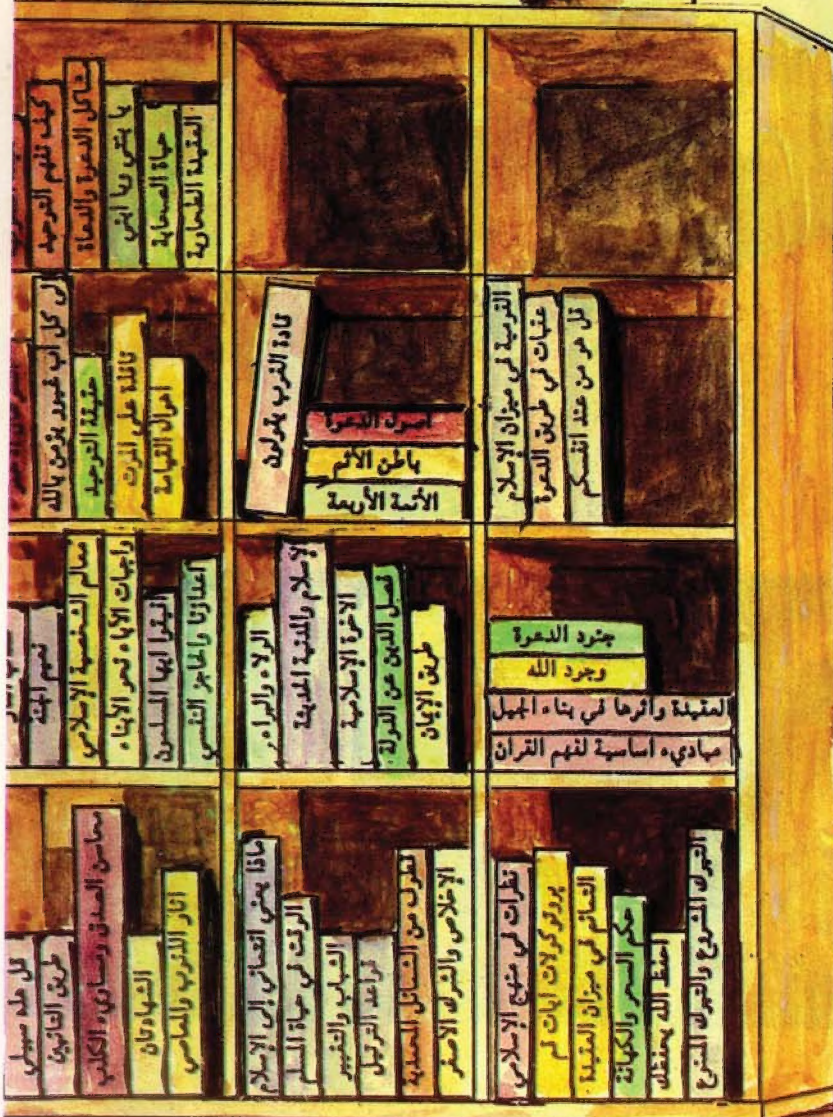 العقيدة الطحاوية
حياة الصحابة
يا بنتي ويا ابني
مشاكل الدعوة والدعاة
كيف نفهم التوحيد
قل هو من عند انفسكم
عقبات في طريق الدعوة
القومية في ميزان الإسلام
اصول الدعوة
باطن الأثم
الأئمة الأربعة
قادة الغرب يقولون
اهوال القيامة
قافلة على الموت
حقيقة التوحيد
إلى كل أب غيور يؤمن بالله
جنود الدعوة
وجود الله
العقيدة واثرها في بناء الجيل
مباديء اساسية لفهم القرآن
طريق الإيمان
فصل الدين عن الدولة
الاخوة الإسلامية
الإسلام والمدنية الحديثة
الولاء والبراء
اعذارنا والحاجز النفسي
افيقوا ايها المسلمون
واجبات الآباء نحو الأبناء
معالم الشخصية الإسلامي
نعيم الجنة
التبرك المشروع والتبرك الممنوع
احفظ الله يحفظك
حكم السحر والكهانة
التمائم في ميزان العقيدة
بروتوكولات ايات قم
نظرات في منهج الإسلامي
الإخلاص والشرك الأصغر
قطوف من الشمائل المحمدية
قواعد الترتيل
الشباب والتغيير
الوقت في حياة المسلم
ماذا يعني انتمائي إلى الإسلام
اثار الذنوب والمعاصي
الشهادتان
محاسن الصدق ومساويء الكذب
طريق التائبين
قل هذه سبيلي